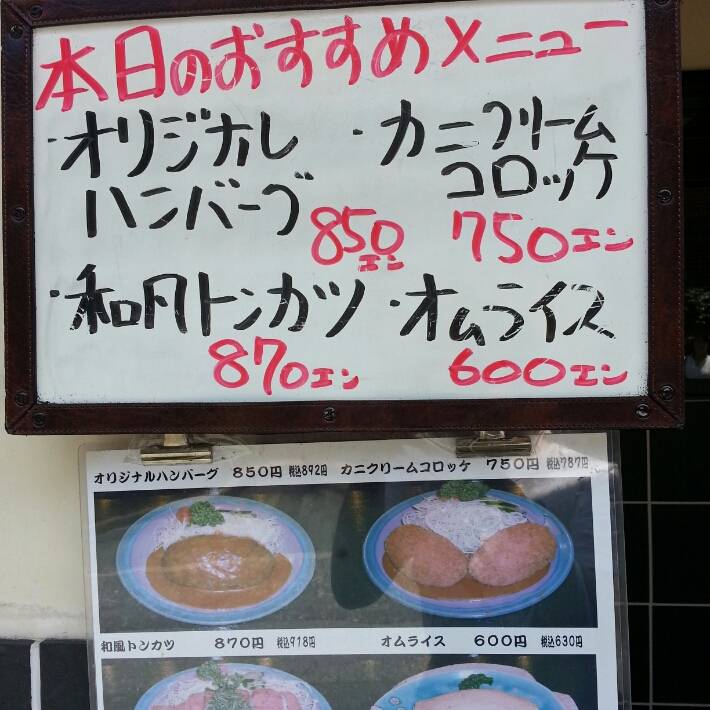 本日のおすすめメニュー
・オリジナル
ハンバーグ
850エン
・カニクリーム
コロッケ
750エン
・和風トンカツ
870エン
・オムライス
600エン
オリジナルハンバーグ 850円 税込892円 カニクリームコロッケ 750円 税込787円
和風トンカツ 870円 税込918円 オムライス 600円 税込630円